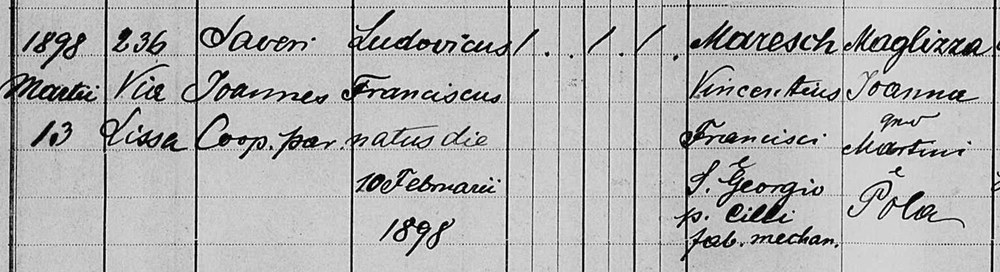 1898 236 Saveri Ludovicus / . / . / . Maresch Maglizza
Martii Via Joannes Franciscus Vincentius Joanna
13 Lissa Coop. par. natus die Francisci qm
Martini
10 Februarii S. Georgio e
1898 p. Cilli Pola
fab. mechan.